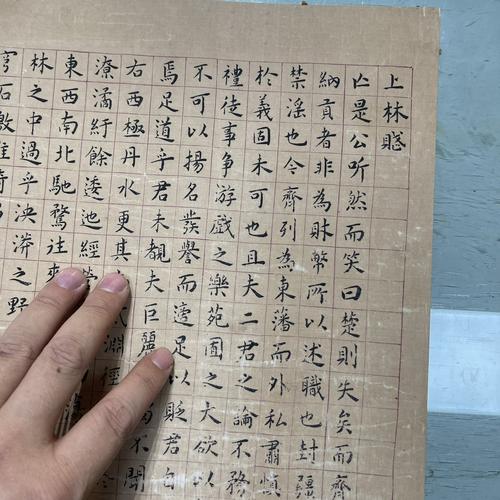 上林賦
亡是公听然而笑曰楚則失矣而齊
納貢者非為財幣所以述職也封疆
禁淫也今齊列為東藩而外私肅慎
於義固未可也且夫二君之論不務
禮徒事爭游戲之樂苑囿之大欲以
不可以揚名發譽而適足以貶君自
焉足道乎君未覩夫巨麗不聞
右西極丹水更其淵徑
潦潏紆餘逶迤經營
東西南北馳騖往來
林之中過乎泱漭之野
穹石激堆埼